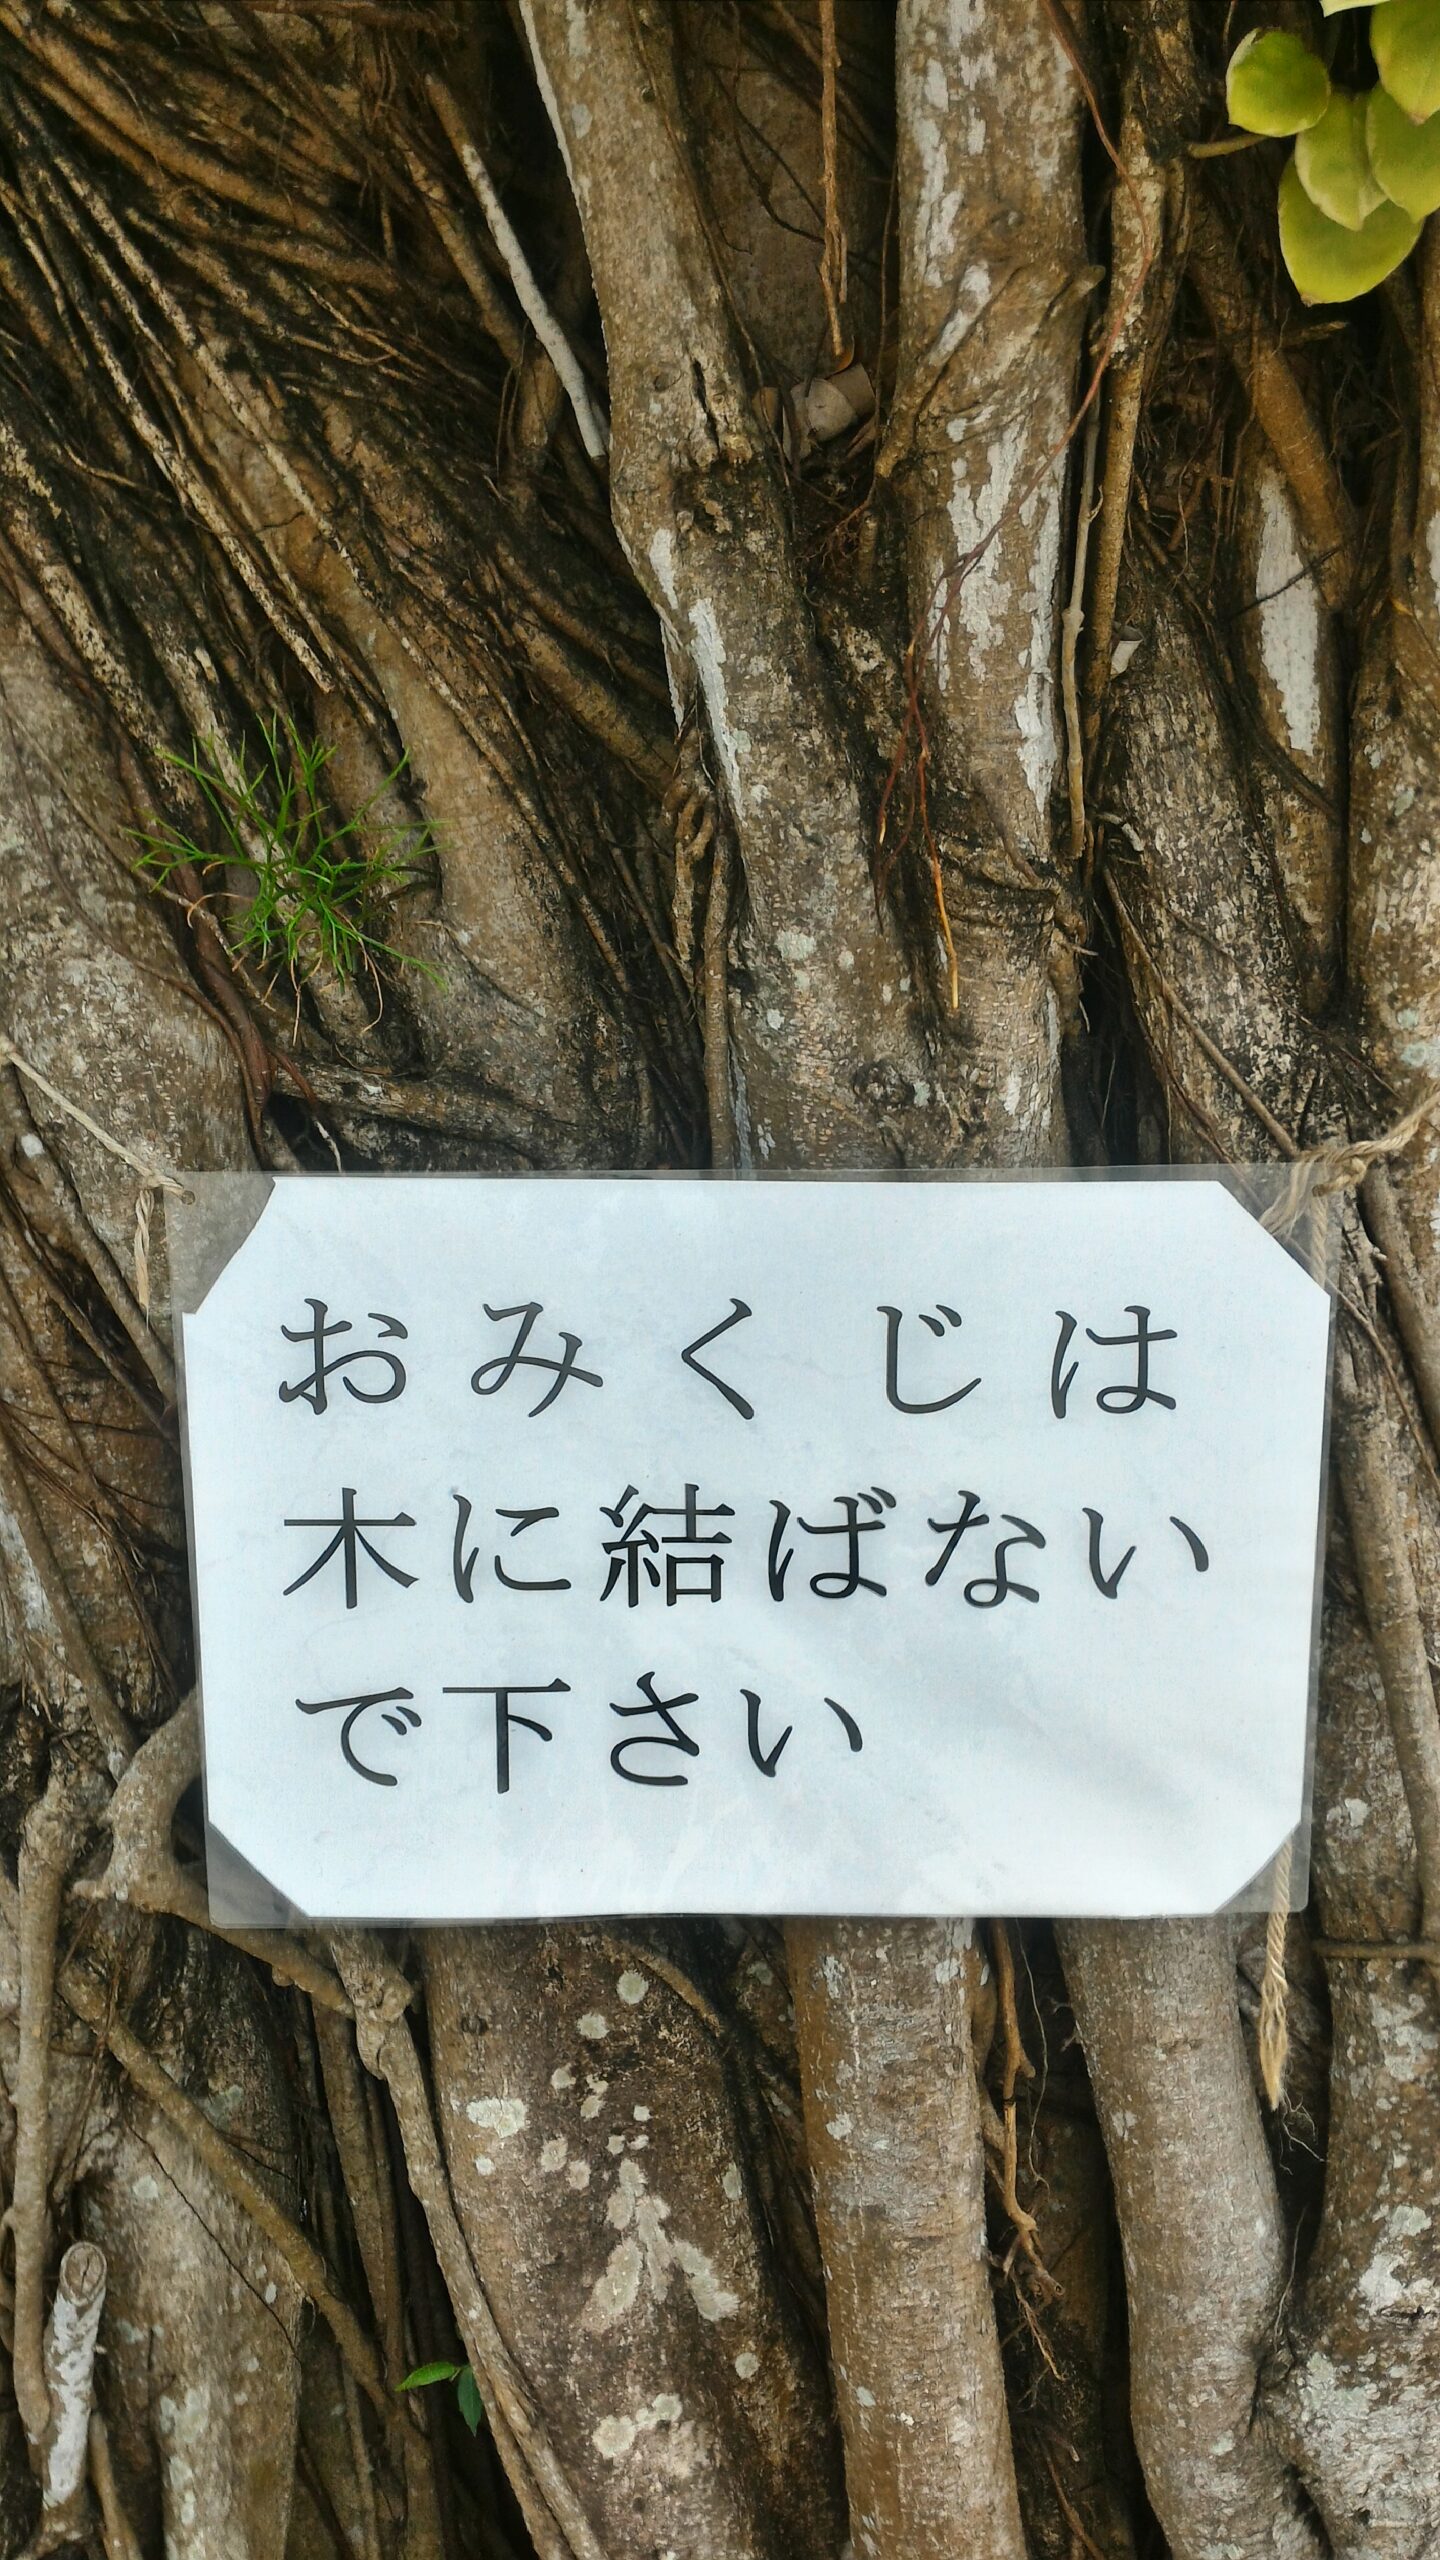 おみくじは
木に結ばない
で下さい